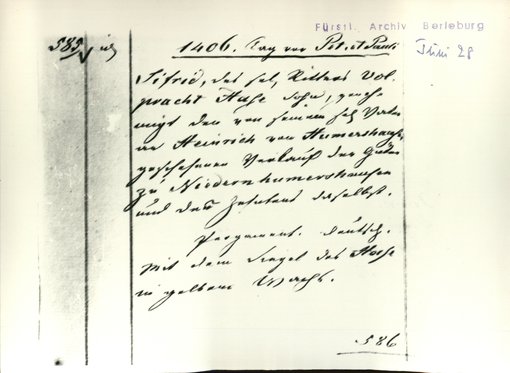 Fürstl. Archiv Berleburg
585
1406. Tag vor Pet. et Pauli
Juni 28
Sifrid, des sel. Ritters Vol-
pracht Hase Sohn, geneh-
migt den von seinem sel. Vater
an Heinrich von Humershaus.
geschehenen Verkauf der Güter
zu Niedernhumershausen
und des Zehntens daselbst.
Pergament. deutsch.
Mit dem Siegel des Hase
in gelbem Wachs.
586